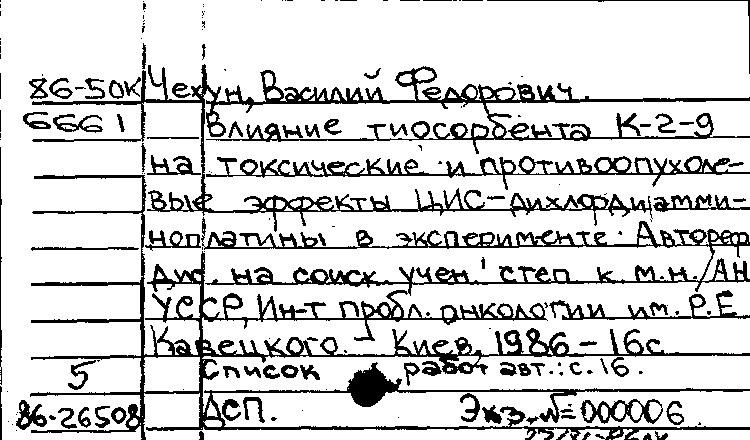 86-50К Чехун, Василий Федорович.
6661 Влияние тиосорбента К-2-9
на токсические и противоопухоле-
вые эффекты ЦИС-дихлордиамми-
ноплатины в эксперименте. Автореф
дис. на соиск. учен. степ к.м.н./АН
УССР, Ин-т пробл. онкологии им. Р.Е
Кавецкого. - Киев, 1986 - 16с
5 Список работ авт.: с. 16.
86-26508 ДСП. Экз. № 000006